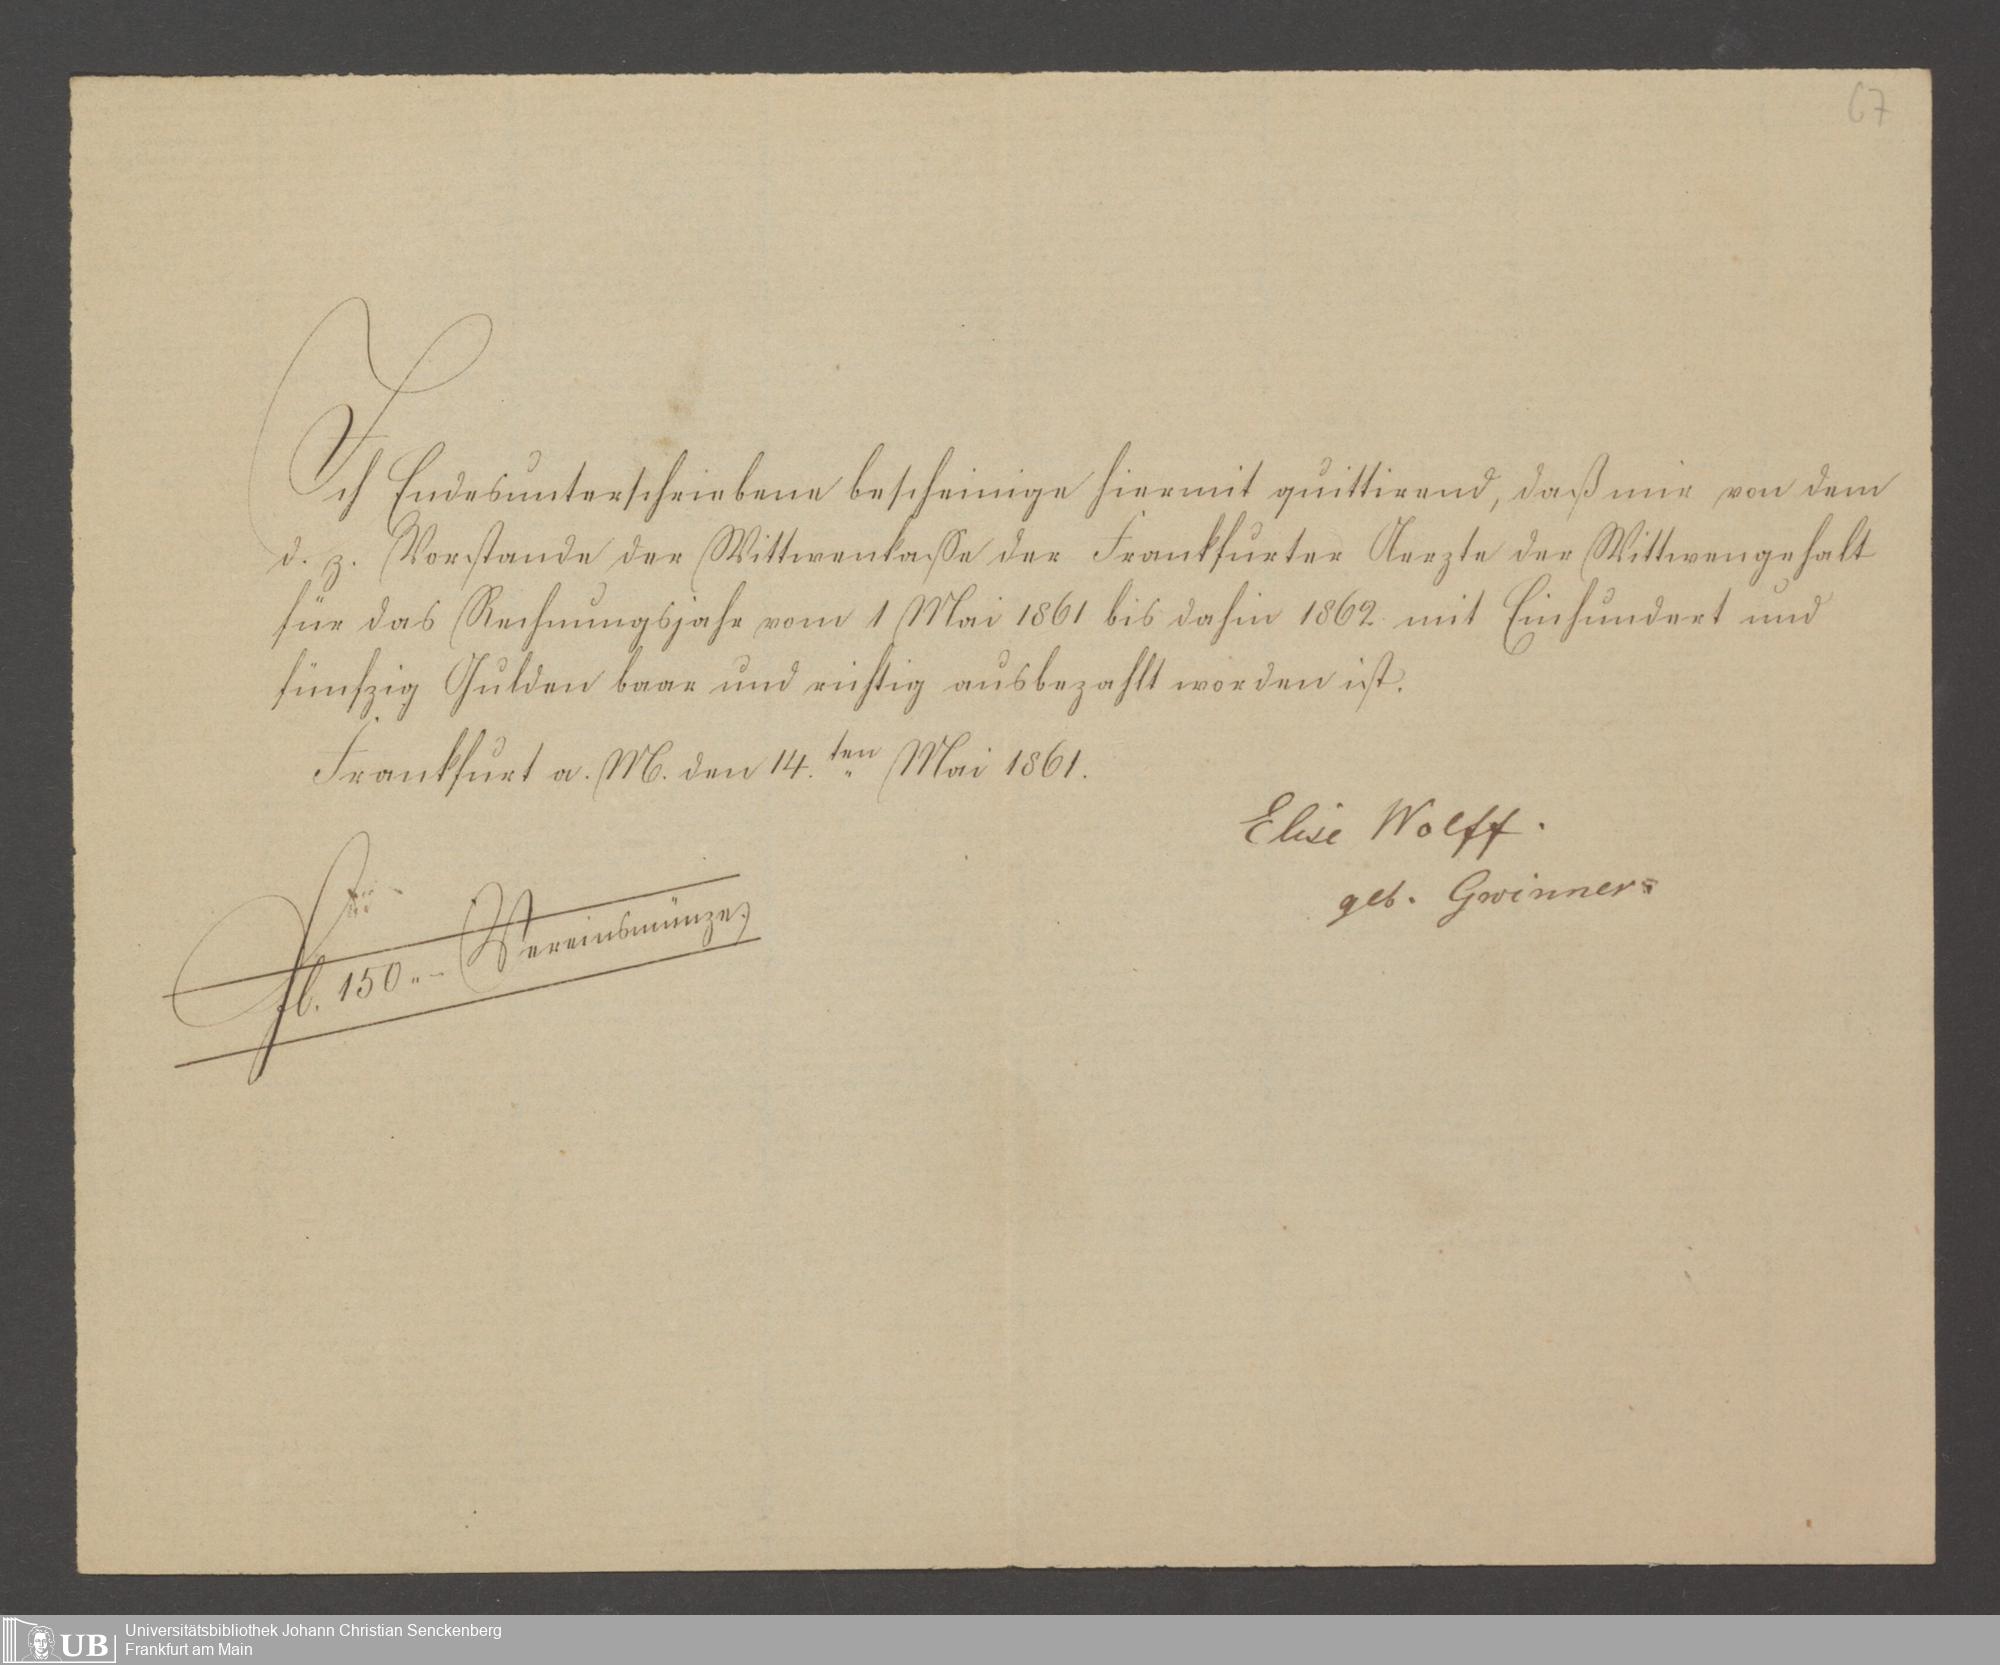 67
Ich Endesunterschriebene bescheinige hiermit quittirend, daß mir von dem
d. z. Vorstande der Wittwenkasse der Frankfurter Aerzte der Wittwengehalt
für das Rechnungsjahr vom 1 Mai 1861 bis dahin 1862 mit Einhundert und
fünfzig Gulden baar und richtig ausbezahlt worden ist.
Frankfurt a. M. den 14.ten Mai 1861.
Elise Wolff.
geb. Gwinner.
fl. 150 „ – Vereinsmünze.
UB
Universitätsbibliothek Johann Christian Senckenberg
Frankfurt am Main